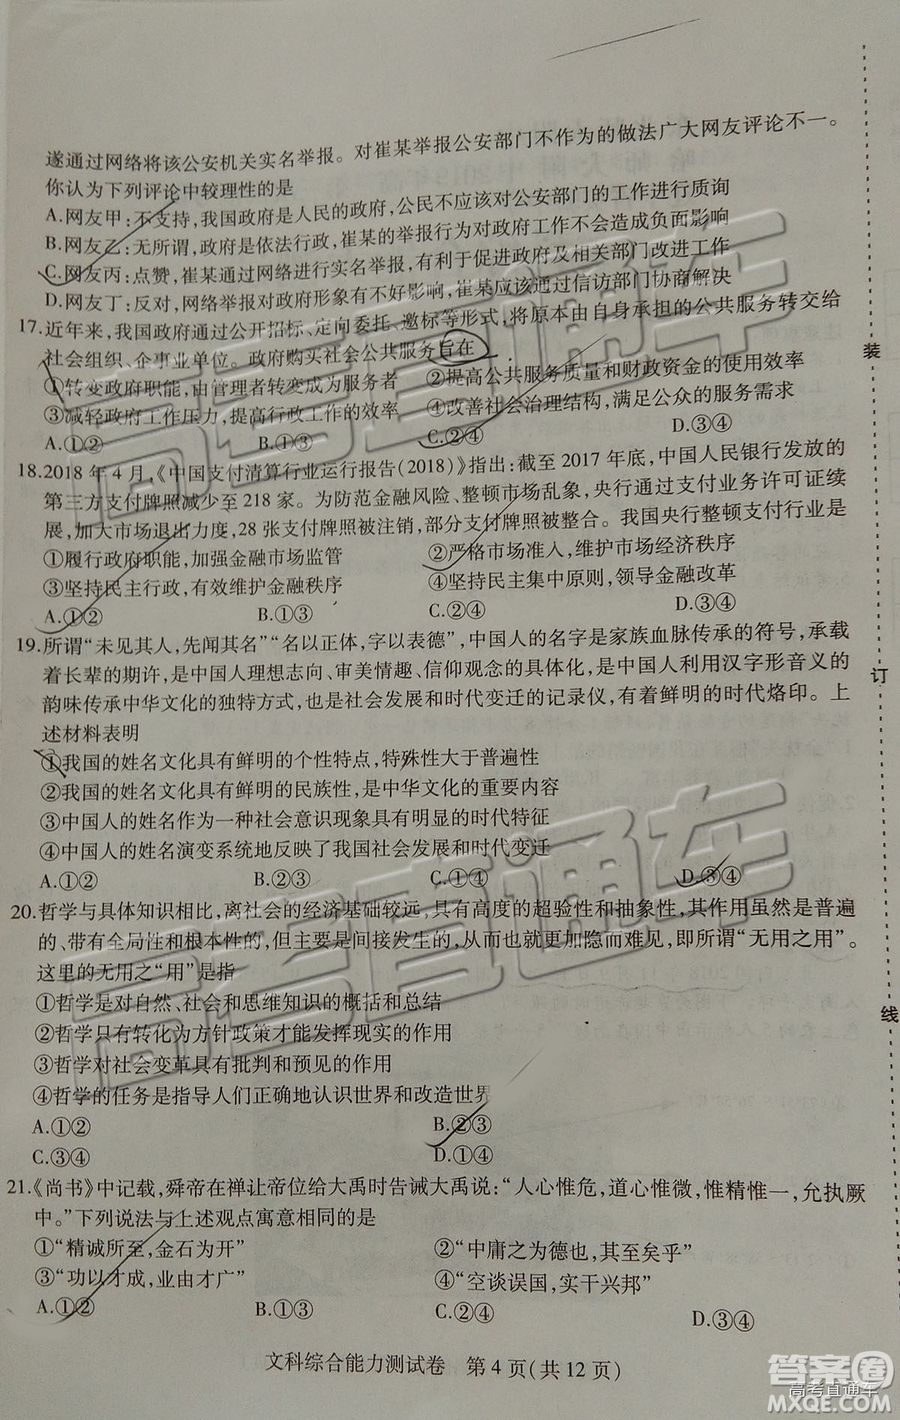 遂通过网络将该公安机关实名举报。对崔某举报公安部门不作为的做法广大网友评论不一。
你认为下列评论中较理性的是
A.网友甲:不支持,我国政府是人民的政府,公民不应该对公安部门的工作进行质询
B.网友乙:无所谓,政府是依法行政,崔某的举报行为对政府工作不会造成负面影响
C.网友丙:点赞,崔某通过网络进行实名举报,有利于促进政府及相关部门改进工作
D.网友丁:反对,网络举报对政府形象有不好影响,崔某应该通过信访部门协商解决
17.近年来,我国政府通过公开招标、定向委托、邀标等形式,将原本由自身承担的公共服务转交给
社会组织、企事业单位。政府购买社会公共服务旨在
①转变政府职能,由管理者转变成为服务者 ②提高公共服务质量和财政资金的使用效率
③减轻政府工作压力,提高行政工作的效率 ④改善社会治理结构,满足公众的服务需求
A.①② B.①③ C.②④ D.③④
18.2018年4月,《中国支付清算行业运行报告(2018)》指出:截至2017年底,中国人民银行发放的
第三方支付牌照减少至218家。为防范金融风险、整顿市场乱象,央行通过支付业务许可证续
展,加大市场退出力度,28张支付牌照被注销,部分支付牌照被整合。我国央行整顿支付行业是
①履行政府职能,加强金融市场监管 ②严格市场准入,维护市场经济秩序
③坚持民主行政,有效维护金融秩序 ④坚持民主集中原则,领导金融改革
A.①② B.①③ C.②④ D.③④
19.所谓“未见其人,先闻其名”“名以正体,字以表德”,中国人的名字是家族血脉传承的符号,承载
着长辈的期许,是中国人理想志向、审美情趣、信仰观念的具体化,是中国人利用汉字形音义的
韵味传承中华文化的独特方式,也是社会发展和时代变迁的记录仪,有着鲜明的时代烙印。上
述材料表明
①我国的姓名文化具有鲜明的个性特点,特殊性大于普遍性
②我国的姓名文化具有鲜明的民族性,是中华文化的重要内容
③中国人的姓名作为一种社会意识现象具有明显的时代特征
④中国人的姓名演变系统地反映了我国社会发展和时代变迁
A.①② B.②③ C.①④ D.③④
20.哲学与具体知识相比,离社会的经济基础较远,具有高度的超验性和抽象性,其作用虽然是普遍
的、带有全局性和根本性的,但主要是间接发生的,从而更加隐而难见,即所谓“无用之用”。
这里的无用之“用”是指
①哲学是对自然、社会和思维知识的概括和总结
②哲学只有转化为方针政策才能发挥现实的作用
③哲学对社会变革具有批判和预见的作用
④哲学的任务是指导人们正确地认识世界和改造世界
A.①② B.②③
C.③④ D.①④
21.《尚书》中记载,舜帝在禅让帝位给大禹时告诫大禹说:“人心惟危,道心惟微,惟精惟一,允执厥
中。”下列说法与上述观点寓意相同的是
①“精诚所至,金石为开” ②“中庸之为德也,其至矣乎”
③“功以才成,业由才广” ④“空谈误国,实干兴邦”
A.①② B.①③ C.②④ D.③④
文科综合能力测试卷 第4页(共12页)
装
订
线
高考直通车
高考直通车
答案圈
高考直通车
MXQE.COM